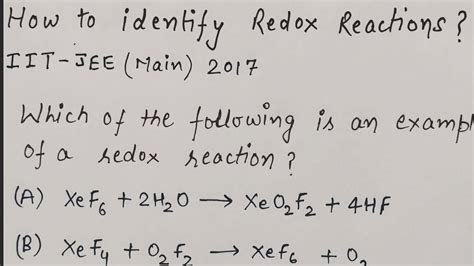 How to identify Redox Reactions?
IIT-JEE (Main) 2017
Which of the following is an exampl
of a redox reaction?
(A) XeF₆ + 2H₂O → XeO₂F₂ + 4HF
(B) XeF₄ + O₂F₂ → XeF₆ + O₂